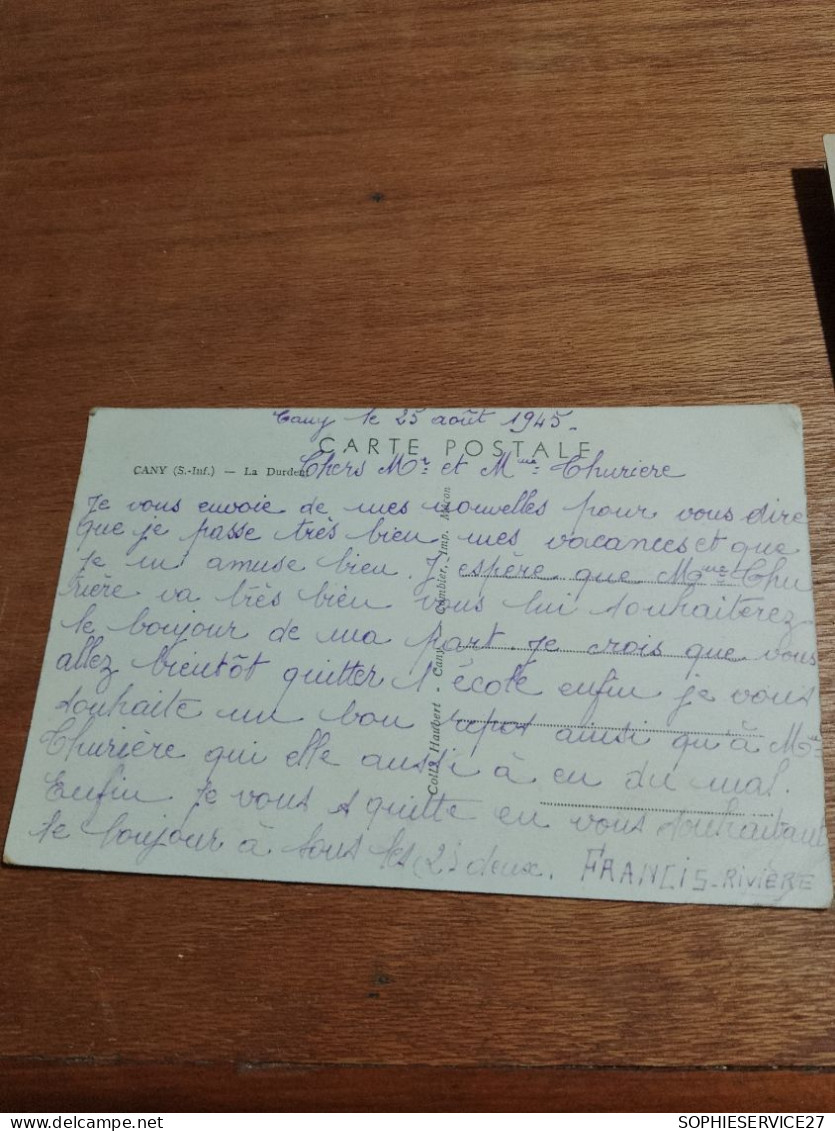 Cany le 25 août 1945.
CARTE POSTALE
CANY (S.-Inf.) — La Durdent
Chers Mr et Mme Thuriere
Je vous envoie de mes nouvelles pour vous dire
que je passe très bien mes vacances et que
je m amuse bien. J espère que Mme Thu
rière va très bien vous lui souhaiterez
le bonjour de ma part. Je crois que vous
allez bientôt quitter l école enfin je vous
souhaite un bon repos ainsi qu'à Mme
Thurière qui elle aussi à eu du mal.
Enfin je vous quitte en vous souhaitant
le bonjour à tous les (2) deux. FRANCIS-RIVIÈRE
Coll. Haubert - Cany Combier, Imp. Macon
SOPHIESERVICE27